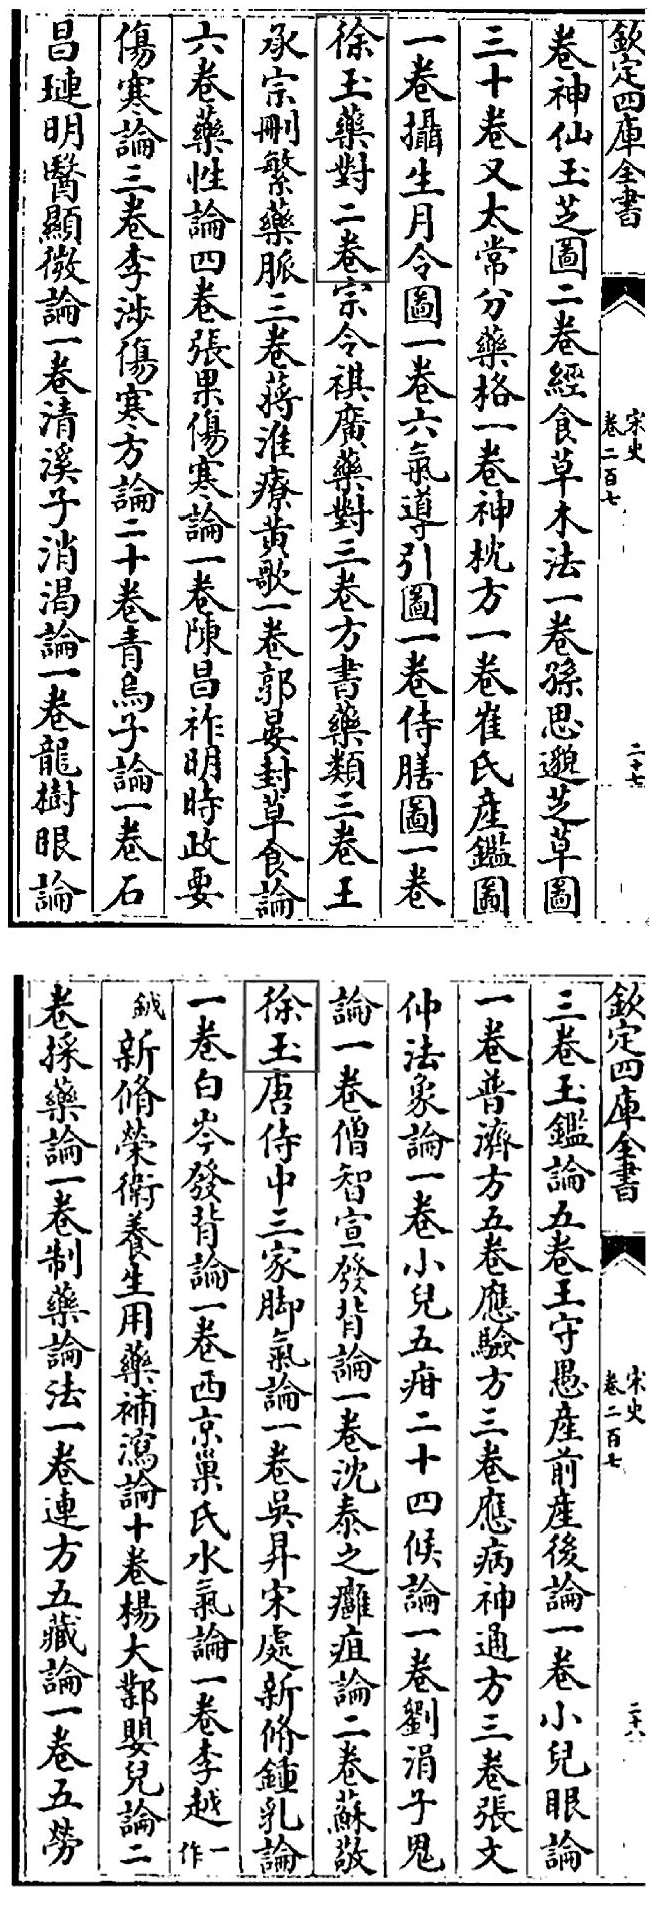 欽定四庫全書
宋史
卷二百七
二十七
卷神仙玉芝圖二卷經食草木法一卷孫思邈芝草圖
三十卷又太常分藥格一卷神枕方一卷崔氏産鑑圖
一卷攝生月令圖一卷六氣導引圖一卷侍膳圖一卷
徐玉藥對二卷宗令祺廣藥對三卷方書藥類三卷王
承宗刪繁藥脈三卷蔣淮療黄歌一卷郭晏封草食論
六卷藥性論四卷張果傷寒論一卷陳昌祚明時政要
傷寒論三卷李涉傷寒方論二十卷青烏子論一卷石
昌璉明醫顯微論一卷清溪子消渴論一卷龍樹眼論
欽定四庫全書
宋史
卷二百七
二十八
三卷玉鑑論五卷王守愚産前産後論一卷小兒眼論
一卷普濟方五卷應驗方三卷應病神通方三卷張文
仲法象論一卷小兒五疳二十四候論一卷劉涓子鬼
論一卷僧智宣發背論一卷沈泰之癰疽論二卷蘇敬
徐玉唐侍中三家脚氣論一卷吳昇宋處新脩鍾乳論
一卷白岑發背論一卷西京巢氏水氣論一卷李越一作
鉞新脩榮衛養生用藥補瀉論十卷楊大鄴嬰兒論二
卷採藥論一卷制藥論法一卷連方五藏論一卷五勞